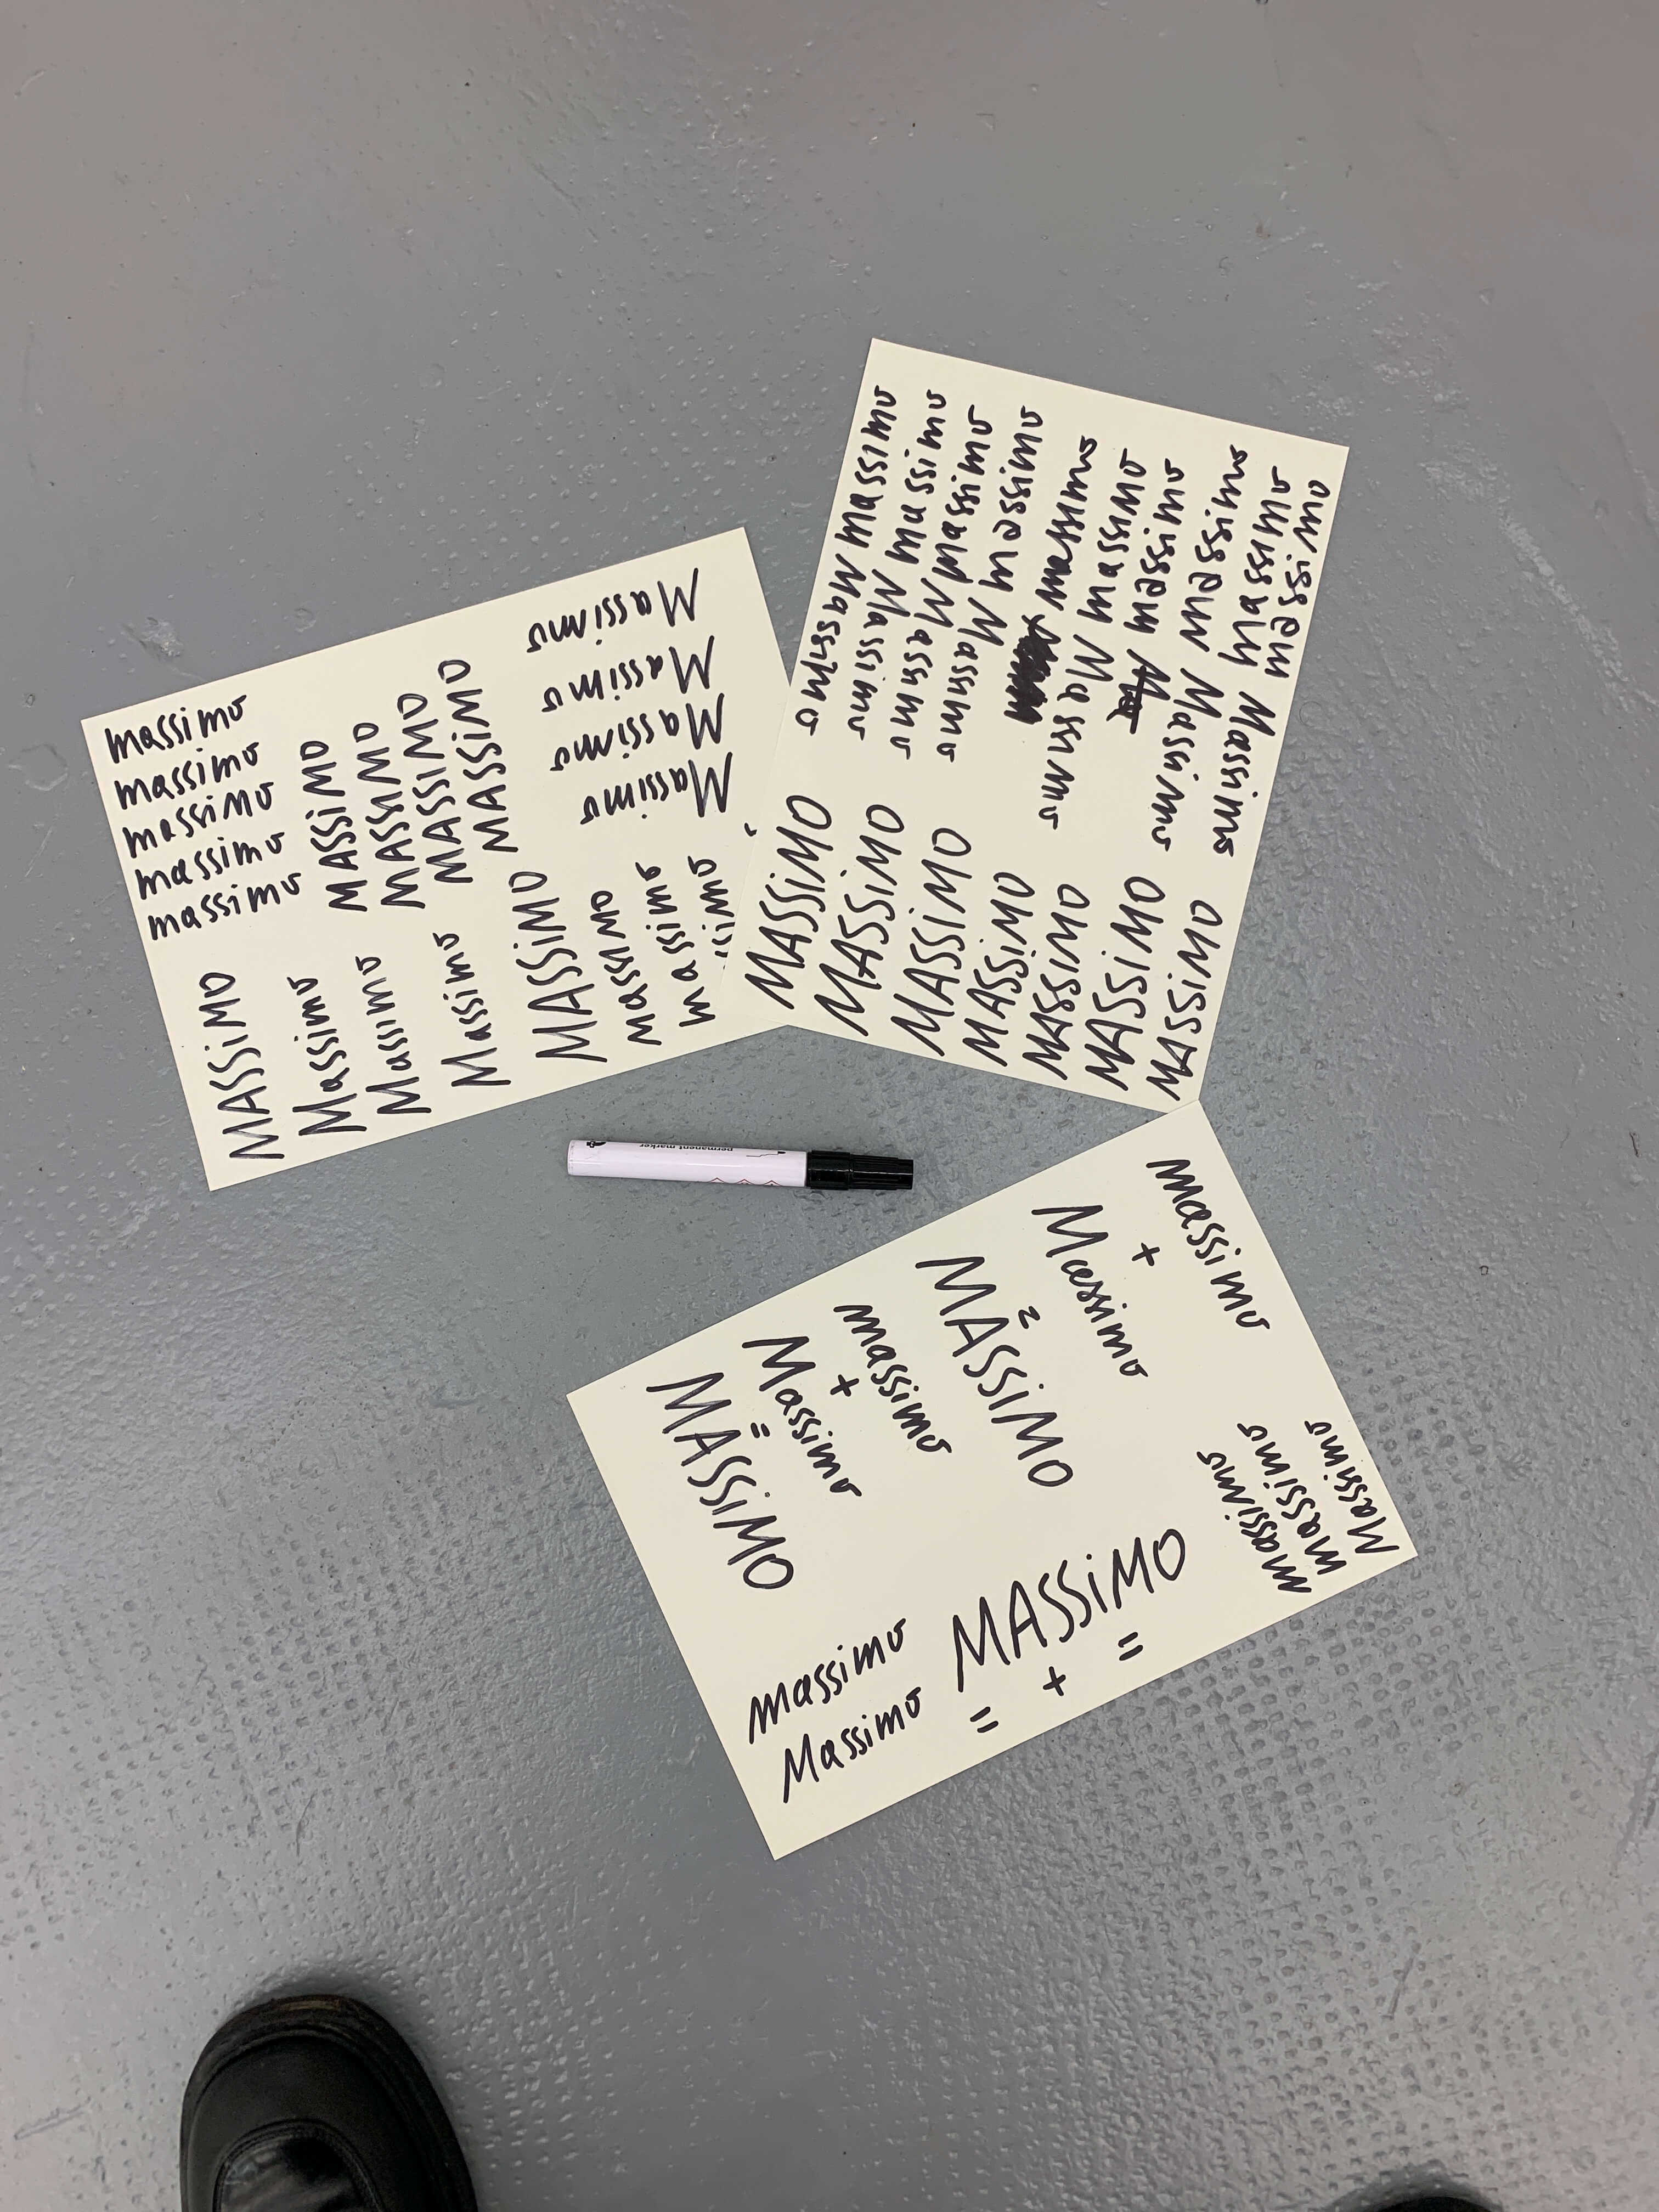 massimo
massimo
massimo
massimo
massimo
MASSiMO
MASSiMO
MASSiMO
MASSiMO
Massimo
Massimo
Massimo
Massimo
MASSiMO
Massimo
Massimo
Massimo
MASSiMO
massimo
massimo
Massimo massimo
Massimo massimo
Massimo massimo
Massimo massimo
massimo
Massimo massimo
massimo
Massimo massimo
Massimo massimo
massimo
MASSiMO
MASSiMO
MASSiMO
MASSiMO
MASSiMO
MASSiMO
MASSiMO
permanent marker
massimo
+
Massimo
=
MASSiMO
massimo
+
Massimo
=
MASSiMO
massimo
Massimo
MASSiMO
= + =
massimo
massimo
Massimo